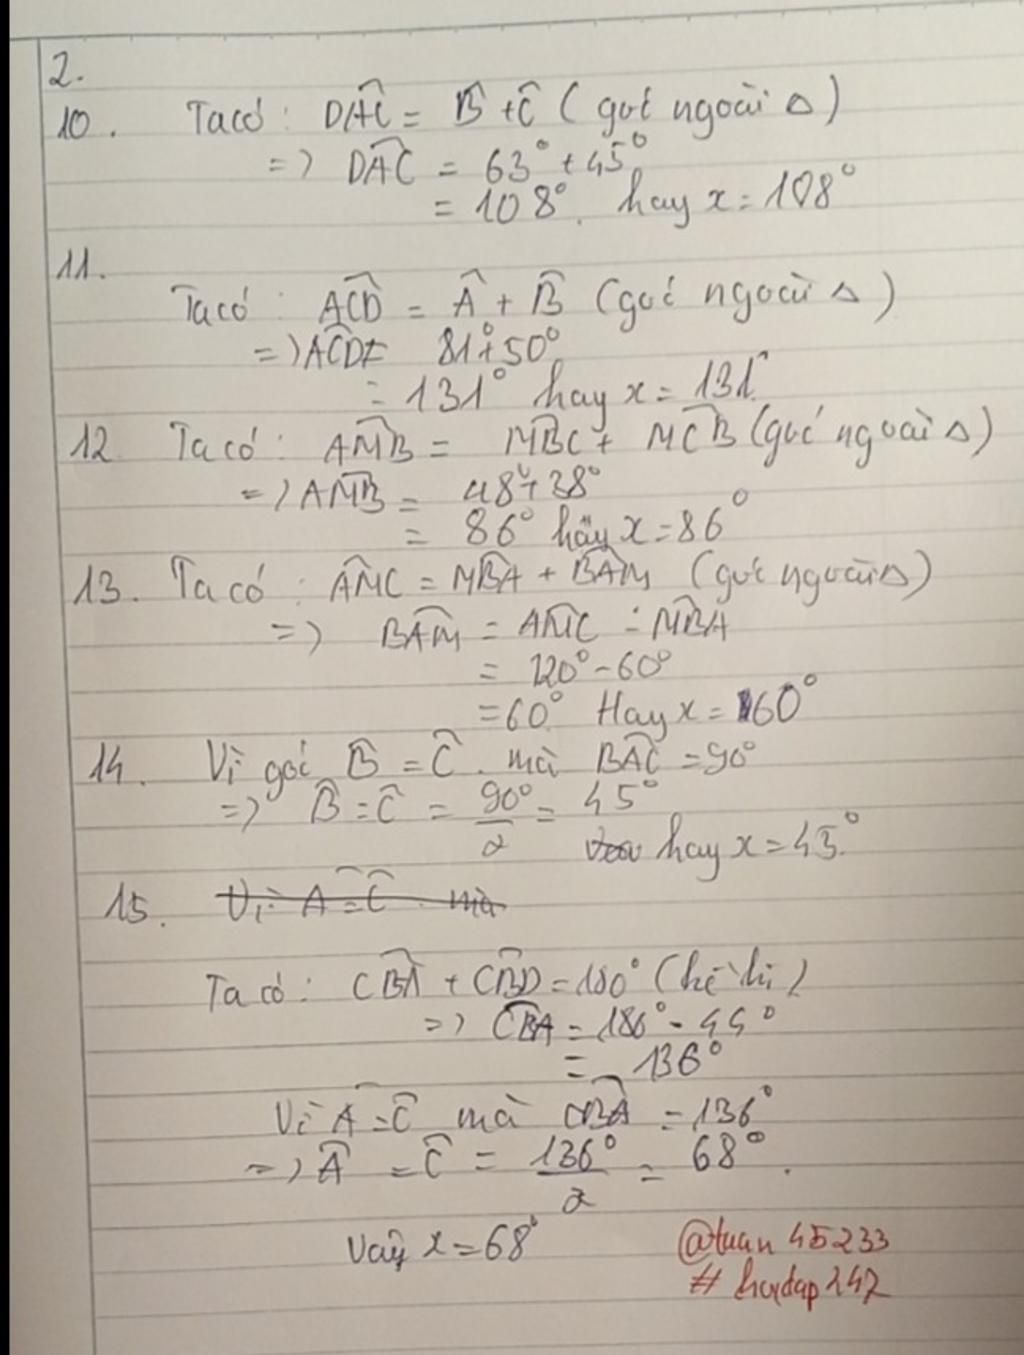 2.
10. Ta có: DAC = B + C (góc ngoài Δ)
=> DAC = 63° + 45°
= 108°. hay x = 108°
11.
Ta có: ACD = A + B (góc ngoài Δ)
=> ACD = 81° + 50°
= 131° hay x = 131°
12 Ta có: AMB = MBC + MCB (góc ngoài Δ)
=> AMB = 48° + 38°
= 86° hay x = 86°
13. Ta có: AMC = MBA + BAM (góc ngoài Δ)
=> BAM = AMC - MBA
= 120° - 60°
= 60° Hay x = 60°
14. Vì góc B = C. mà BAC = 90°
=> B = C = 90°/2 = 45°
hay x = 45°.
15. Vì A = C mà
Ta có: CBA + CBD = 180° (kề bù)
=> CBA = 180° - 44°
= 136°
Vì A = C mà CBA = 136°
=> A = C = 136°/2 = 68°.
Vậy x = 68°
@tuan45233
# hoidap247